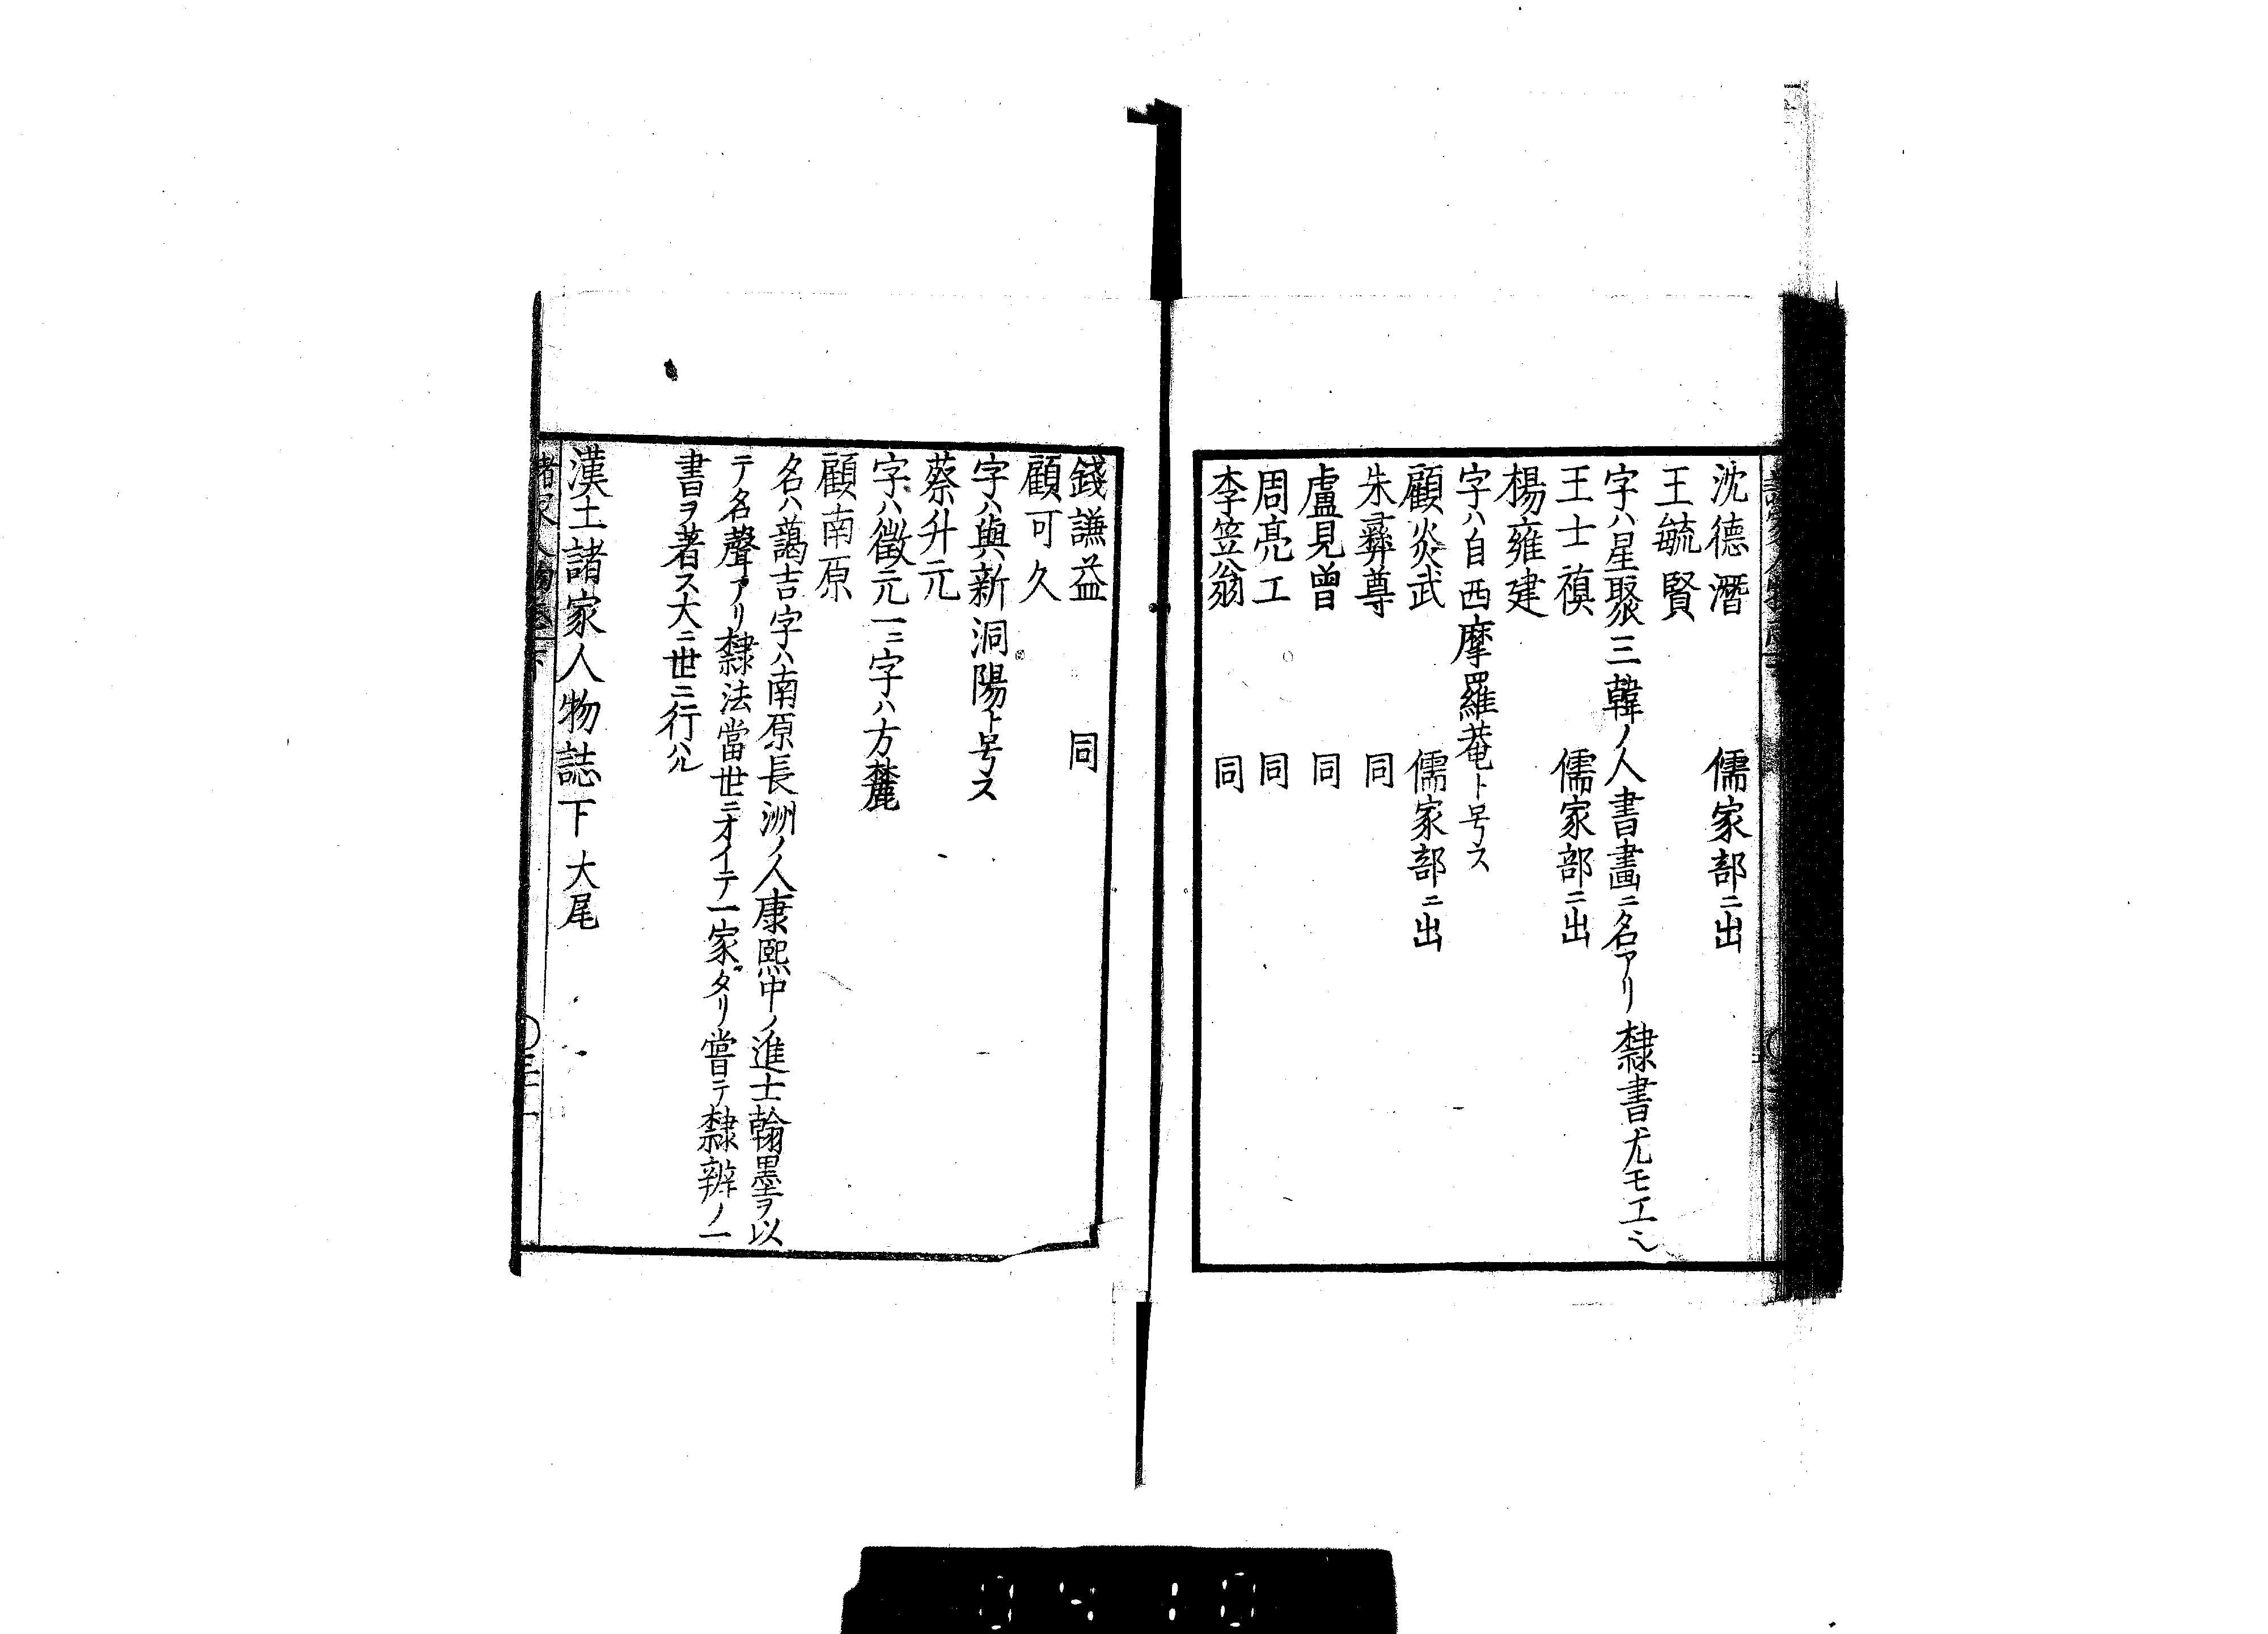 沈德潛　儒家部ニ出
王毓賢
字ハ星聚三韓ノ人書畫ニ名アリ隸書尤モ工ミ
王士禛　儒家部ニ出
楊雍建
字ハ自西摩羅菴ト号ス
顧炎武　儒家部ニ出
朱彝尊　同
盧見曾　同
周亮工　同
李笠翁　同
錢謙益　同
顧可久
字ハ與新洞陽ト号ス
蔡升元
字ハ徵元一ニ字ハ方麓
顧南原
名ハ藹吉字ハ南原長洲ノ人康熙中ノ進士翰墨ヲ以
テ名聲アリ隸法當世ニオイテ一家タリ嘗テ隸辨ノ一
書ヲ著ス大ニ世ニ行ハル
漢土諸家人物誌下大尾
0410